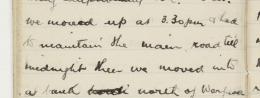 we moved up at 3.30pm & had
to maintain the main road till
midnight then we moved into
a bank north of